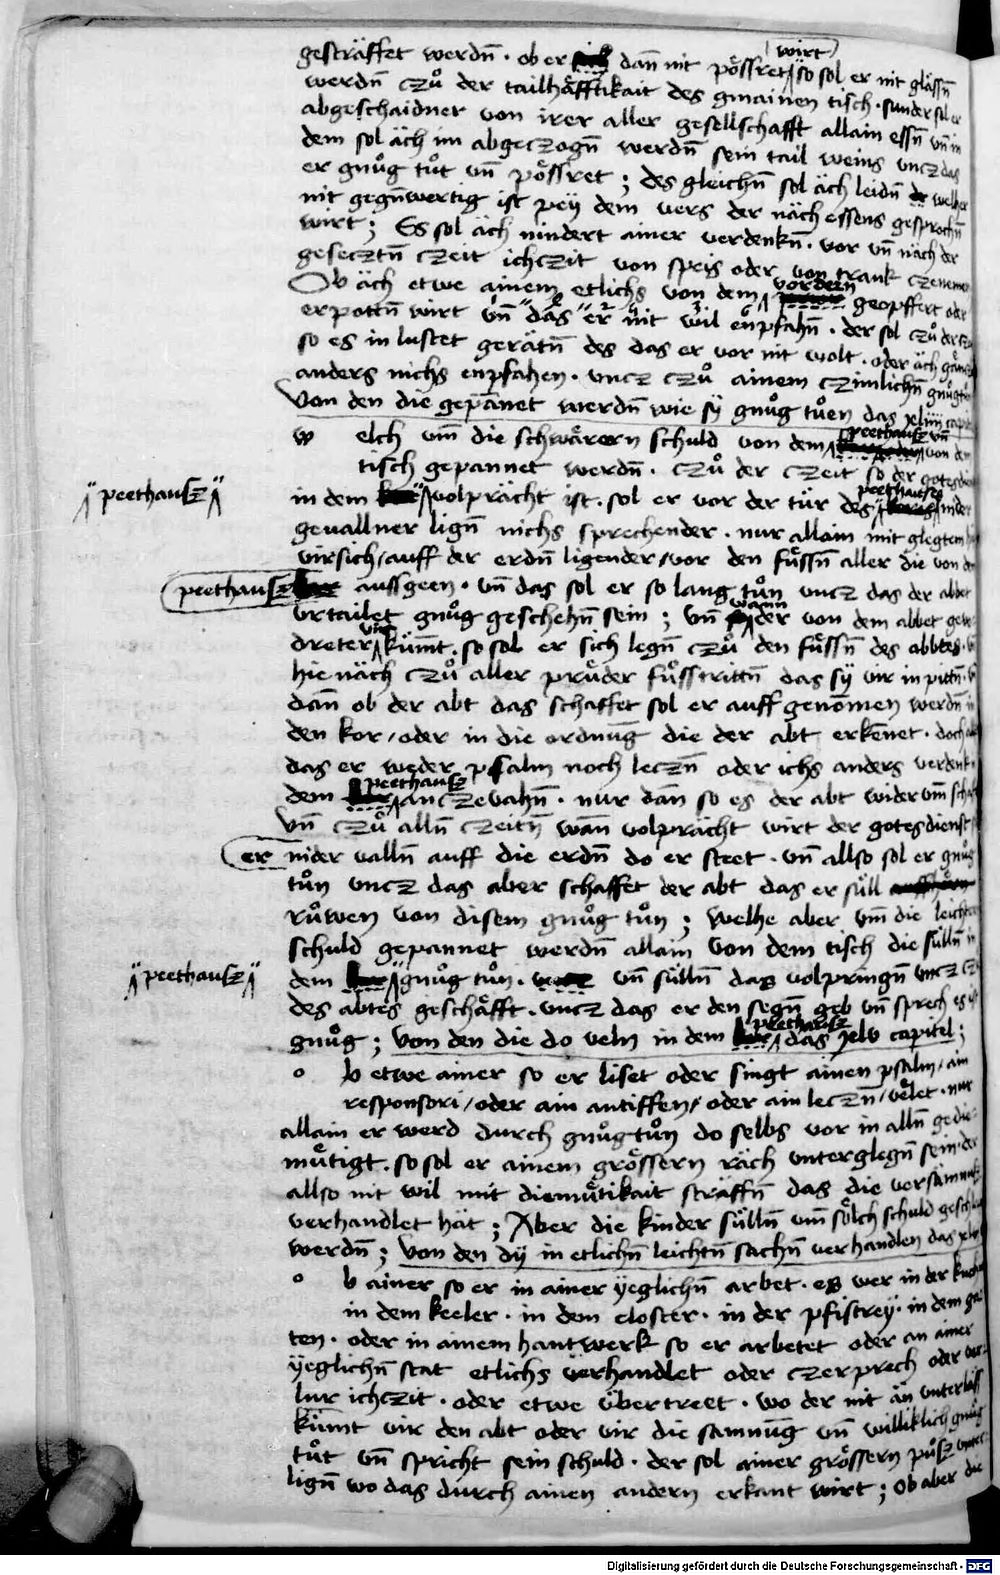 wirt
gesträffet werdn̄ · ob er dan̄ nit pössret so sol er nit glässn̄
werdn̄ czů der tailhäfftikait des gmainen tisch · sunder sol er
abgeschaidner von irer aller gesellschafft allain essn̄ vn̄ in
dem sol äch im abgeczogn̄ werdn̄ sein tail weins vncz das
er gnůg tůt vn̄ pössret ; des gleichn̄ sol äch leidn̄ welher
nit gegn̄wertig ist pey dem vers der näch essens gesprochn̄
wirt ; Es sol äch nindert ainer verdenkn̄ · vor vn̄ näch der
gesecztn̄ czeit ichczit von speis oder von trank czenemen
vordern
Ob äch etwe ainem etlichs von dem geopffert oder
erpottn̄ wirt vn̄ das er nit wil enpfahn̄ · der sol czů der
so es in lustet gerätn̄ des das er vor nit wolt · oder äch
anders nichs enpfahen · vncz czů ainem czimlichn̄ gnůgtůn
Von den die gepannet werdn̄ wie sy gnůg tůen das xliiij
peethausz vn̄
w elch vm̄ die schwärern schuld von dem von dem
tisch gepannet werdn̄ · czů der czeit so der
peethausz
peethausz
in dem volprächt ist · sol er vor der tür des nider
geuallner lign̄ nichs sprechender · nur allain mit glegtem
vir sich / auff der erdn̄ ligender / vor den füssn̄ aller die von
peethausz aussgeen · vn̄ das sol er so lang tůn vncz das der abbt
wann
vrtailet gnůg geschehn̄ sein ; vn̄ der von dem abbet
dreter kümt · so sol er sich legn̄ czů den füssn̄ des abbtes
hie näch czů aller prüder füsstrittn̄ das sy vir in pittn̄
dan̄ ob der abt das schaffet sol er auff genomen werdn̄
den kor / oder in die ordnūg die der abt erkennet · doch
das er weder psalm noch leczn̄ oder ichs anders
peethausz
dem anczevahn̄ · nur dan̄ so es der abt widervm̄
vn̄ czů alln̄ czeitn̄ wan̄ volprächt wirt der gotesdienst
er nider valln̄ auff die erdn̄ do er steet · vn̄ allso sol er gnůg
tůn vncz das aber schaffet der abt das er süll
růwen von disem gnůg tůn ; welhe aber vm̄ die
schuld gepannet werdn̄ allain von dem tisch die sülln̄
peethausz
dem gnůg tůn · vn̄ sülln̄ das volpringn̄ vncz
des abtes geschäfft · vncz das er den segn̄ geb vn̄ sprech es
peethausz
gnůg ; Von den die do veln in dem das xlv capitel ;
o b etwe ainer so er liset oder singt ainen psalm / ain
responsori / oder ain antiffen / oder ain leczn̄ / velet · nur
allain er werd durch gnůgtůn do selbs vor in alln̄
mütigt · so sol er ainem grössern räch vnterglegn̄ sein · der
allso nit wil mit diemütikait sträffn̄ das die
verhandlet hät ; Aber die kinder sülln̄ vm̄ sölch schuld
werdn̄ ; Von den dy in etlichn̄ leichtn̄ sachn̄ verhandlen das
o b ainer so er in ainer yeglichn̄ arbet · es wer in der
in dem keeler · in dem closter · in der pfistrey · in dem
ten · oder in ainem hantwerk so er arbetet oder an ainer
yeglichn̄ stat etlichs verhandlet oder czerprech oder
lur ichczit · oder etwe übertreet · wo der nit än vnterläss
kümt vir den abt oder vir die samnūg vn̄ williklich gnůg
tůt vn̄ spricht sein schuld · der sol ainer grössern půsz
lign̄ wo das durch ainen andern erkant wirt ; Ob aber
Digitalisierung gefördert durch die Deutsche Forschungsgemeinschaft - DFG